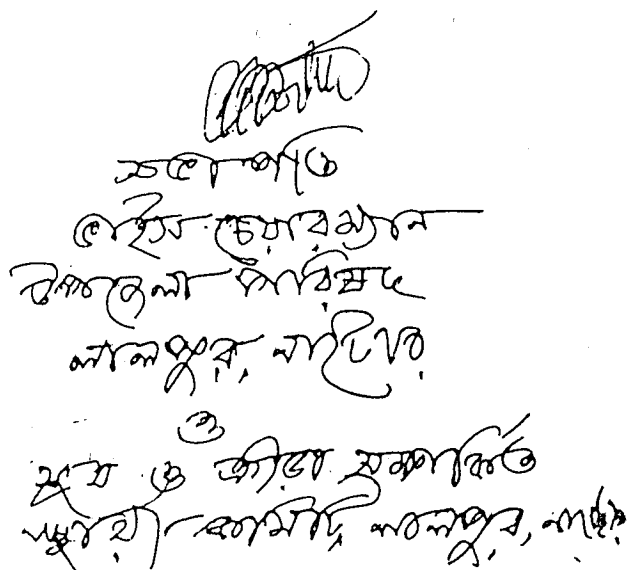 সভাপতি
ভাইস চেয়ারম্যান
উপজেলা পরিষদ
লালপুর, নাটোর
ও
যুব ও ক্রীড়া সম্পর্কিত
স্থায়ী কমিটি লালপুর, নাটোর